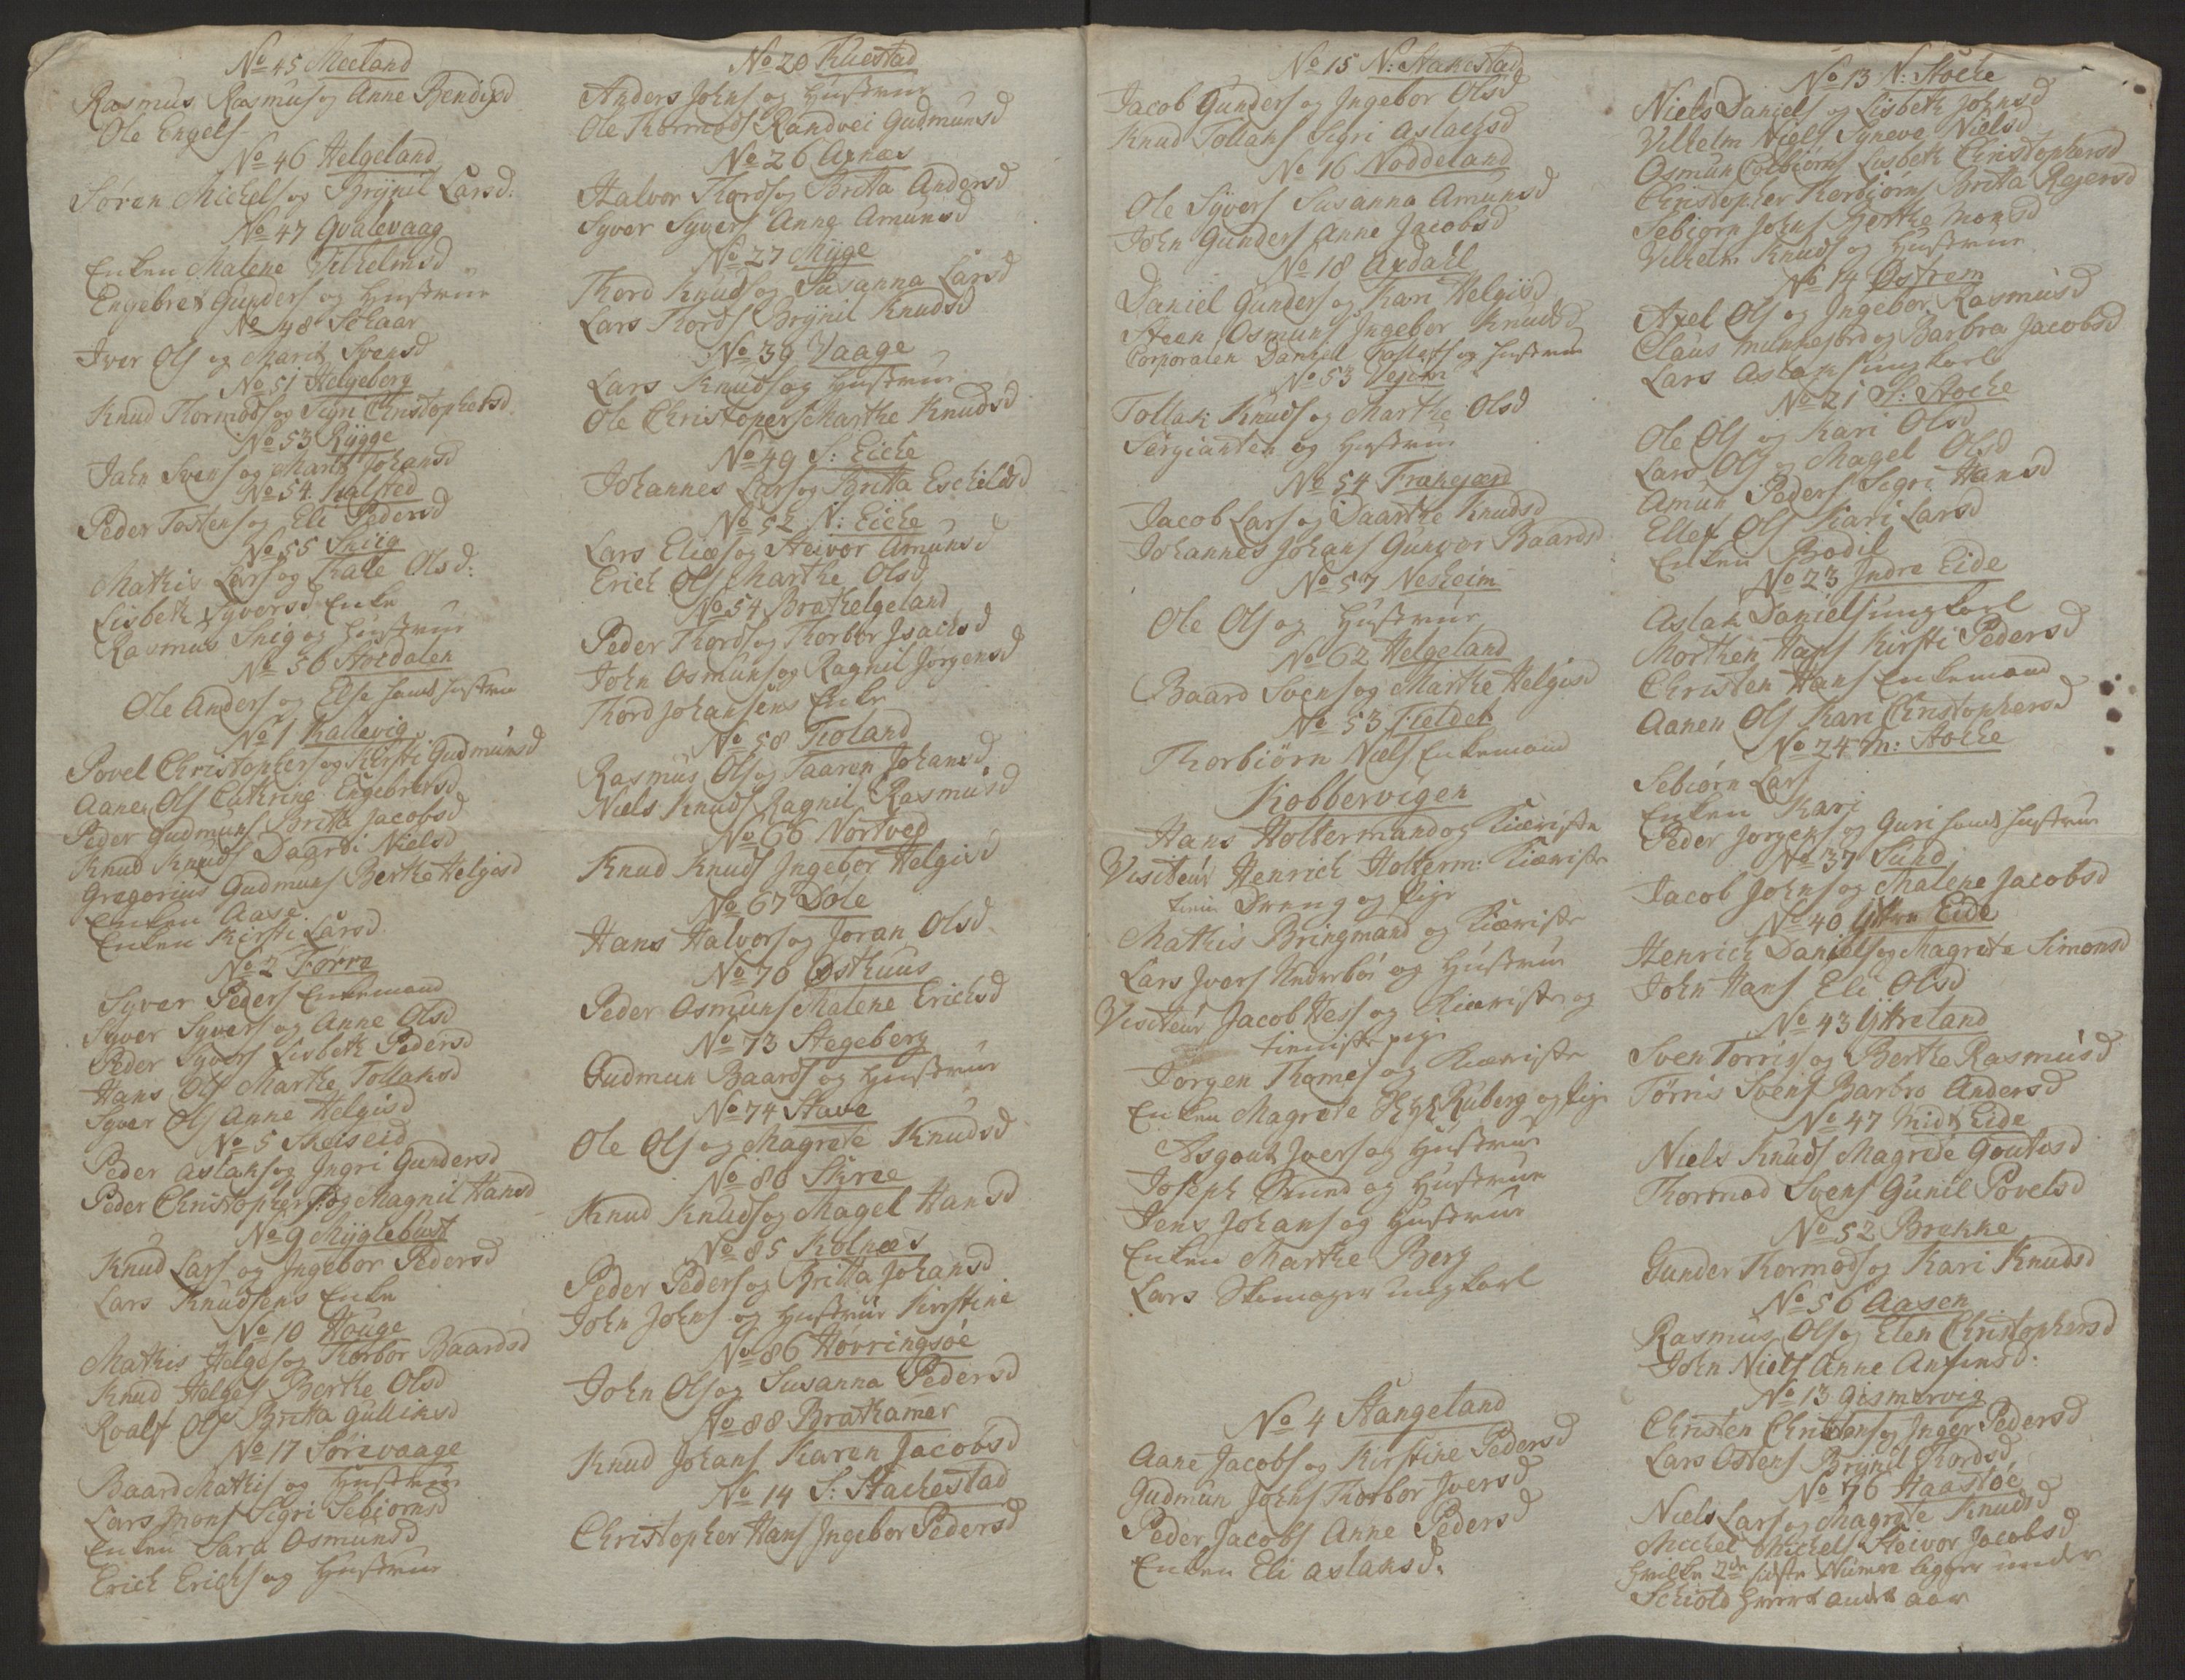 No 45 Meeland
Rasmus Rasmus og Anne Bendixd
Ole Engels
No 46 Helgeland
Søren Michels og Brynil Larsd:
No 47 Qvalevaag
Enken Malene Vilhelmsd
Engebret Gunders og Hustrue
No 48 Schaar
Iver Ols og Marit Svensd
No 51 Helgeberg
Knud Thormods og Sigri Christophersd
No 53 Rygge
Jahn Svens og Marit Johansd
No 54 Kalsted
Peder Tostens og Eli Pedersd
No 55 Sniig
Mathis Lars og Kale Olsd:
Lisbeth Syversd Enke
Rasmus Snig og Hustrue
No 56 Stordalen
Ole Anders og Else hands hustrue
No 1 Kallevig
Povel Christophers og Kirsti Gudmunsd
Aanen Ols Cathrine Engebretsd
Peder Gudmuns Britta Jacobsd
Knud Knuds Daardi Nielsd
Gregorius Gudmuns Berthe Helgesd
Enken Aase
Enken Kirsti Larsd
No 2 Førre
Syver Peders Enkemand
Syver Syvers og Anne Olsd
Peder Syvers Lisbeth Pedersd
Hans Ols Marthe Tollaksd
Syver Ols Anne Helgisd
No 5 Skeiseid
Peder Aslaks og Ingri Gundersd
Peder Christophers: og Magnil Hansd
No 9 Myglebust
Knud Lars og Ingebor Pedersd
Lars Knudsens Enke
No 10 Houge
Mathis Helges og Thorbor Baardsd
Knud Helges Berthe Olsd
Roalf Ols Britta Gulliksd
No 17 Sørevaage
Baard Mathis og Hustrue
Lars Mons Sigri Sebiørnsd
Enken Sara Osmunsd
Erich Erichs og Hustrue
No 20 Ruestad
Anders Johns og Hustrue
Ole Thormods Randvei Gudmunsd
No 26 Axnæs
Halvor Thords og Britta Andersd
Syver Syvers Anne Amunsd
No 27 Myge
Thord Knuds og Susanna Larsd
Lars Thords Brynil Knudsd
No 39 Vaage
Lars Knuds og Hustrue
Ole Christopers Marthe Knudsd
No 49 S: Eiche
Johannes Lars og Britta Eschildsd
No 52 N: Eiche
Lars Elias og Steivor Amunsd
Erich Ols Marthe Olsd
No 54 Brathelgeland
Peder Thords og Thorbor Isachsd
John Osmuns og Ragnil Jørgensd
Thord Johansens Enke
No 58 Fioland
Rasmus Ols og Taaren Johansd
Niels Knuds Ragnil Rasmusd
No 66 Nortved
Knud Knuds Ingebor Helgisd
No 67 Døle
Hans Halvors og Jøran Olsd
No 70 Østhuus
Peder Osmuns Malene Erichsd
No 73 Stegeberg
Gudmun Baards og Hustrue
No 74 Stave
Ole Ols og Magrete Knudsd
No 80 Skree
Knud Knuds og Magel Hansd
No 85 Kolnæs
Peder Peders og Britta Johansd
John Johns og Hustrue Kirstine
No 86 Høvringsøe
John Ols og Susanna Pedersd
No 88 Brathamer
Knud Johans Karen Jacobsd
No 14 S: Stachestad
Christopher Hans Ingebor Pedersd
No 15 N: Stakestad
Jacob Gunders og Ingebor Olsd
Knud Tollaks Sigri Aslachsd
No 16 Noddeland
Ole Syvers Susanna Amunsd
John Gunders Anne Jacobsd
No 18 Axdahl
Daniel Gunders og Kari Helgisd
Steen Osmuns Ingebor Knudsd
Corporalen Daniell og Hustrue
No 53 Vejem
Tollak Knuds og Marthe Olsd
Sergianten og Hustrue
No 54 Frakgærd
Jacob Lars og Daarthe Knudsd
Johannes Johans Gunvor Baardsd
No 57 Nesheim
Ole Ols og Hustrue
No 62 Helgeland
Baard Svens og Marthe Helgisd
No 53 Fieldet
Thorbiørn Niels Enkemand
Kobbervigen
Hans Holtermand og Kiæriste
Visiteur Henrich Holterm: Kiæriste
Dreng og Pige
Mathis Bringmand og Kiæriste
Lars Ivers Underbøe og Hustrue
Visiteur Jacob Hess og Kiæriste og
pige
Jørgen Thomes og Kiæriste
Enken Magrete Ruberg og Pige
Asgout Ivers og Hustrue
Joseph Smed og Hustrue
Jens Johans og Hustrue
Enken Marthe Berg
Lars Skomager ungkarl
No 4 Stangeland
Aane Jacobs og Kirstine Pedersd
Gudmun Johns Thorbor Iversd
Peder Jacobs Anne Pedersd
Enken Eli Aslaksd.
No 13 N: Stoche
Niels Daniels og Lisbeth Johnsd
Vilhelm Niels Syneve Nielsd
Osmun Colbiørns Lisbeth Christophersd
Christopher Thorbiørns Britta Rejersd
Sebiørn Johns Berthe Monsd
Vilhelm Knuds og Hustrue
No 14 Østrem
Axel Ols og Ingebor Rasmusd
Claus Munnefiord og Barbra Jacobsd
Lars Aslaks ungkarl
No 21 S: Stoche
Ole Ols og Kari Olsd
Lars Ols Magel Olsd
Amun Peders Sigri Hansd
Ellef Ols Kari Larsd
Enken Bodil
No 23 Indre Eide
Aslak Daniels ungkarl
Morthen Hans Kirsti Pedersd
Christen Hans Enkemand
Aanen Ols Kari Christophersd
No 24 M: Stoche
Sebiørn Lars
Enken Kari
Peder Jørgens og Guri hands Hustrue
No 37 Sund
Jacob Johns og Malene Jacobsd
No 40 Yttre Eide
Henrich Daniels og Magrete Simonsd
John Hans Eli Olsd
No 43 Yttreland
Sven Torris og Berthe Rasmusd
Tørris Svens Barbro Andersd
No 47 Midt Eide
Niels Knuds Magrede Goutesd
Thormod Svens Gunil Povelsd
No 52 Brekke
Gunder Thormods og Kari Knudsd
No 56 Aasen
Rasmus Ols og Elen Christophersd
John Niels Anne Anfinsd.
No 13 Gismervig
Christen Christens og Inger Pedersd
Lars Ostens Brynil Thordsd
No 76 Haastøe
Niels Lars og Magrete Knudsd
Michel Michels Steivor Jacobsd
hvilke 2de sidste Numere ligger under
Schiold hvert andet aar